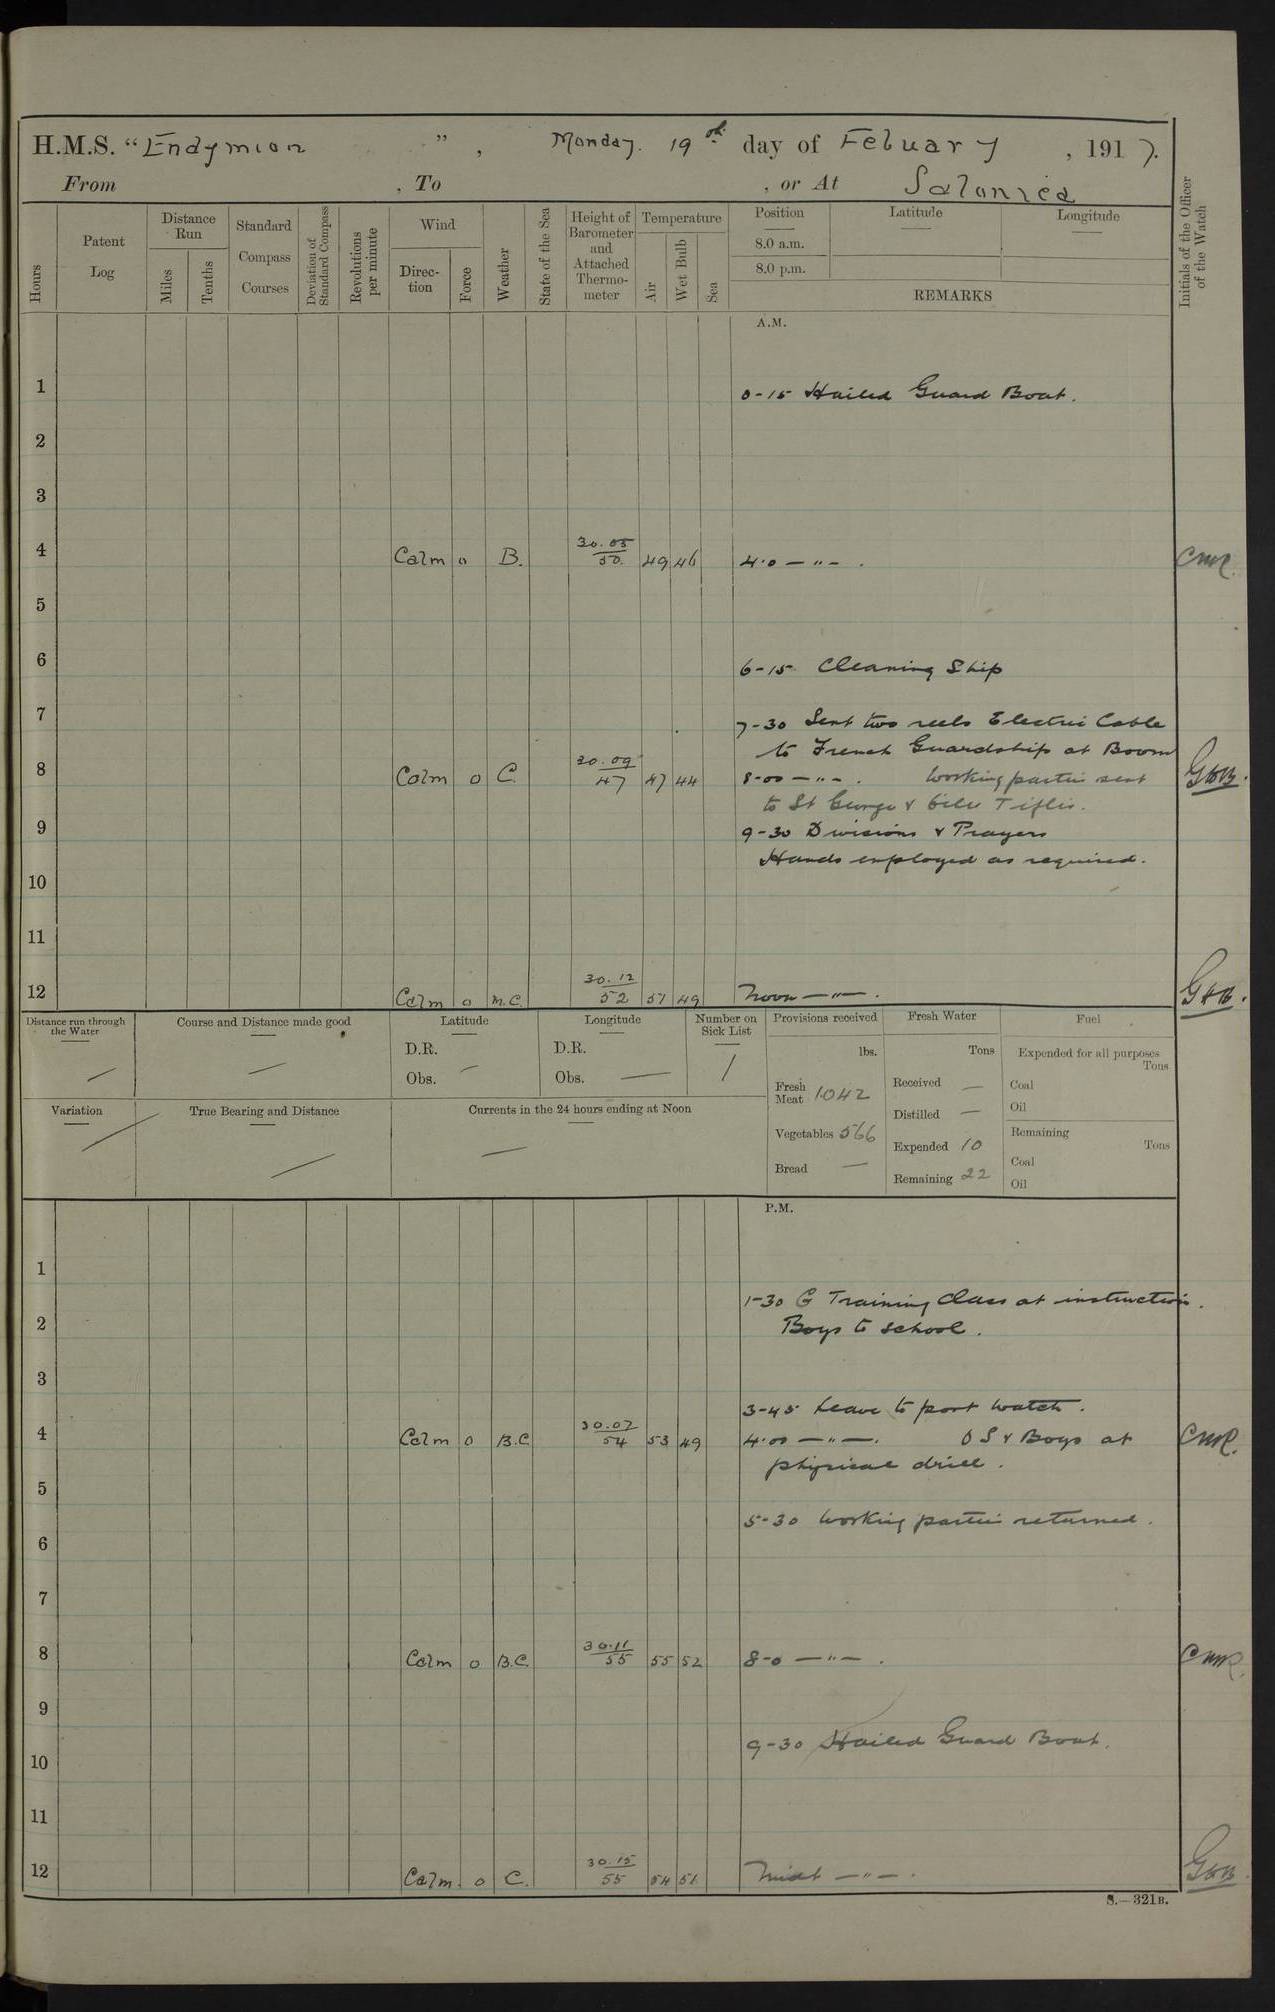 H.M.S. "Endymion", Monday. 19th day of Febuary, 1917.
From , To , or At Salonica
Hours
Patent Log
Distance Run
Miles
Tenths
Standard Compass Courses
Deviation of Standard Compass
Revolutions per minute
Wind
Direction
Force
Weather
State of the Sea
Height of Barometer and Attached Thermometer
Temperature
Air
Wet Bulb
Sea
Position
8.0 a.m.
8.0 p.m.
Latitude
Longitude
REMARKS
Initials of the Officer of the Watch
A.M.
1
0-15 Hailed Guard Boat.
2
3
4 Calm 0 B. 30.05/50. 49 46 4.0 — " — . CMR.
5
6
6-15 Cleaning Ship
7
7-30 Sent two reels Electric Cable
to French Guardship at Boom
8 Calm 0 C. 30.09/47 47 44 8-00 — " — . Working partie sent
to St George & Tiflis.
9
9-30 Divisions & Prayers
Hands employed as required.
10
11
12 Calm 0 M.C. 30.12/52 51 49 Noon — " — .
Distance run through the Water
—
Course and Distance made good
—
Latitude
D.R.
Obs. —
Longitude
D.R.
Obs. —
Number on Sick List
1
Provisions received
lbs.
Fresh Meat 1042
Vegetables 566
Bread —
Fresh Water
Tons
Received —
Distilled —
Expended 10
Remaining 22
Fuel
Expended for all purposes
Tons
Coal
Oil
Remaining
Tons
Coal
Oil
Variation
—
True Bearing and Distance
—
Currents in the 24 hours ending at Noon
—
P.M.
1
1-30 G Training Class at instruction.
2
Boys to school.
3
3-45 Leave to port watch.
4 Calm 0 B.C 30.07/54 53 49 4.00 — " — . O S & Boys at CMR.
physical drill.
5
5-30 Working partie returned.
6
7
8 Calm 0 B.C. 30.11/55 55 52 8-0 — " — . CMR.
9
9-30 Hailed Guard Boat.
10
11
12 Calm. 0 C. 30.15/55 54 51. Midt — " — .
S.—321B.